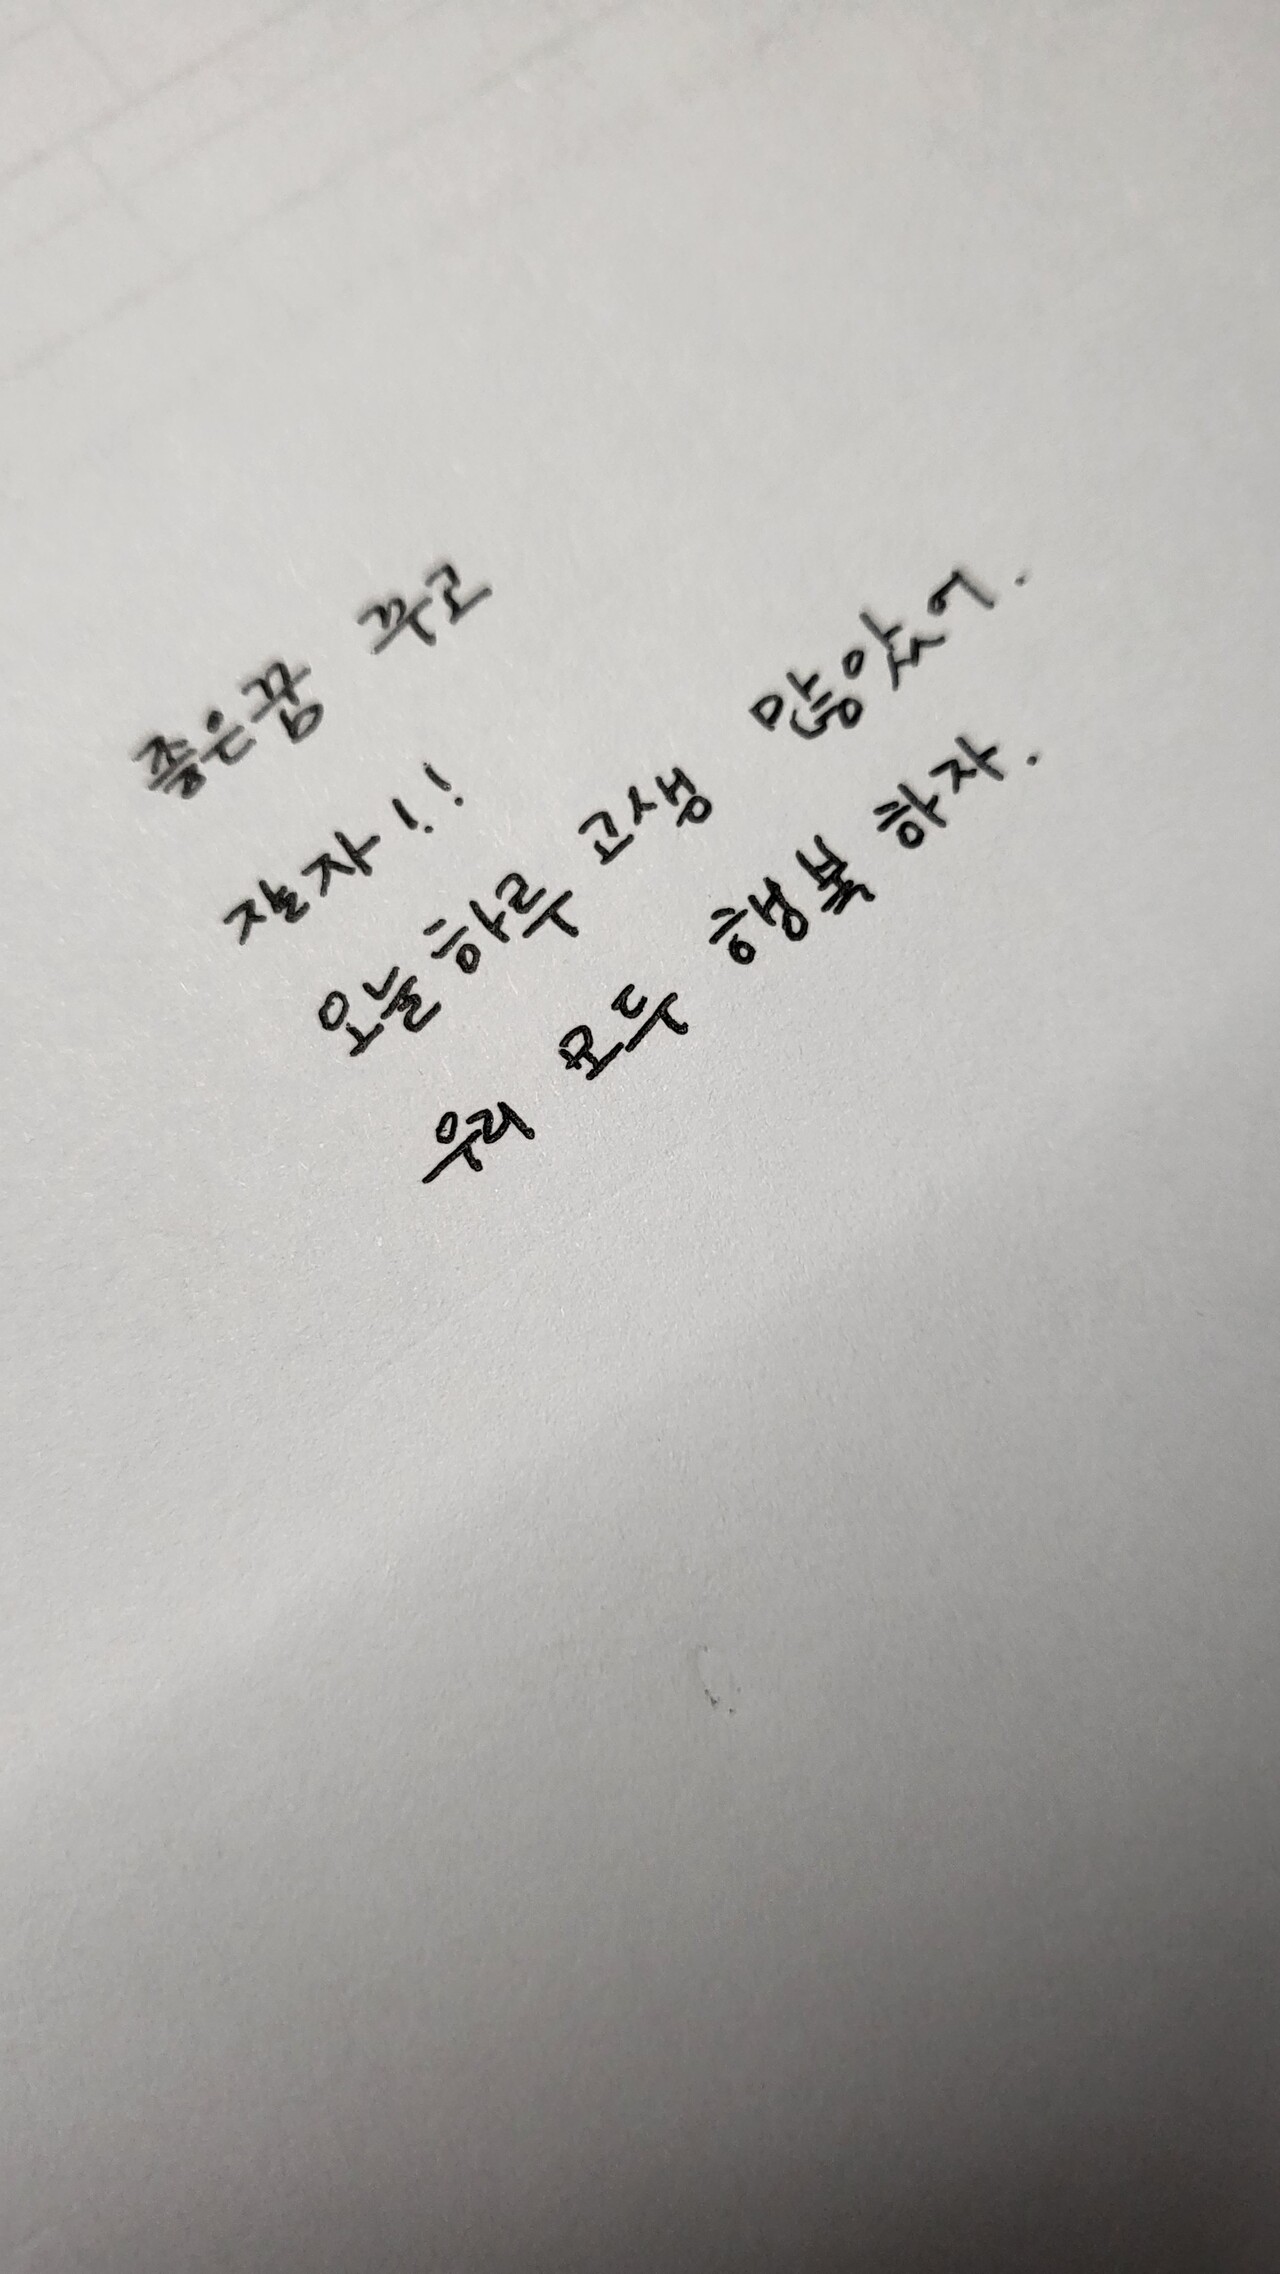 좋은꿈 꾸고
잘자!!
오늘하루 고생 많았어.
우리 모두 행복 하자.